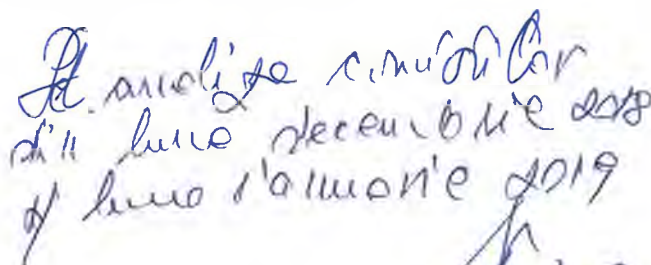 Pt. analiza
din luna decembrie 2018
și luna ianuarie 2019